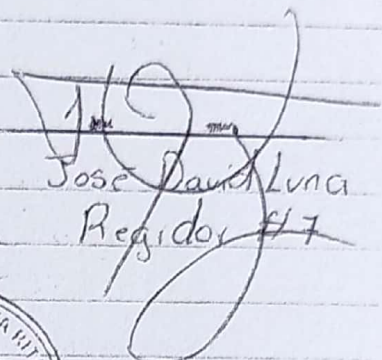 José David Luna
Regidor #7